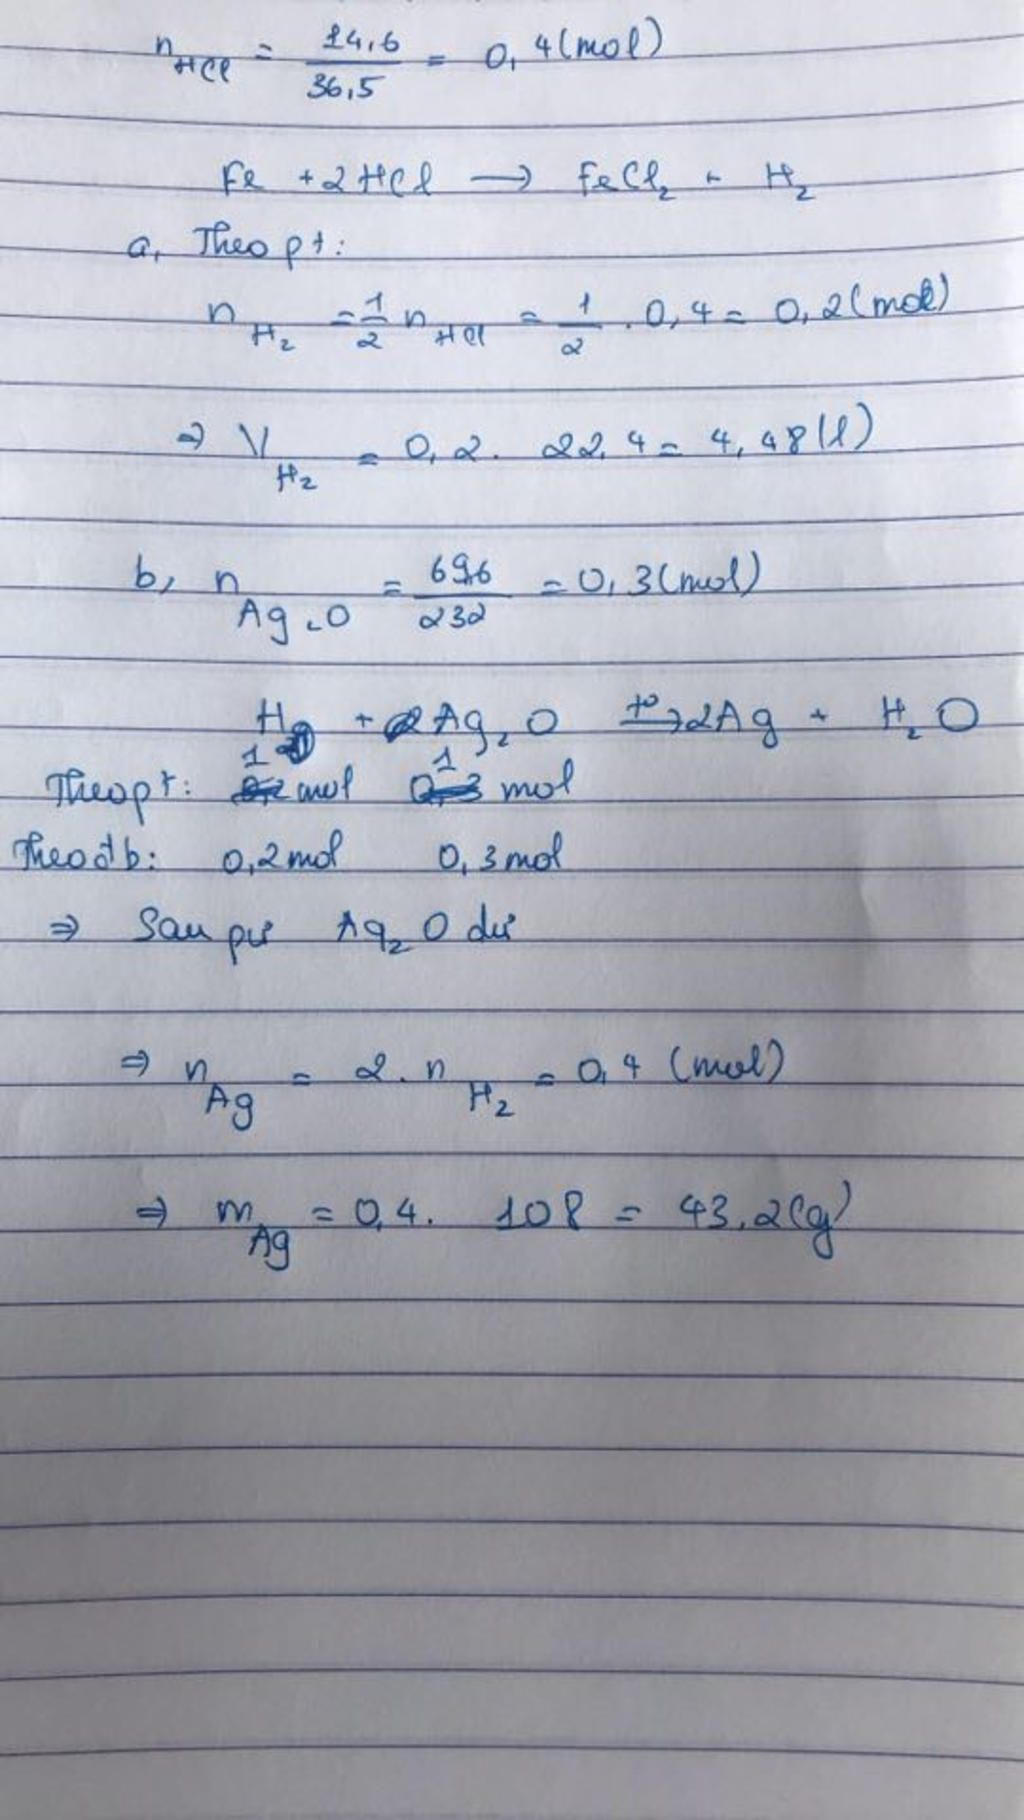 n HCl = 14,6 / 36,5 = 0,4 (mol)
Fe + 2HCl → FeCl₂ + H₂
a, Theo pt:
n H₂ = 1/2 n HCl = 1/2 . 0,4 = 0,2 (mol)
⇒ V H₂ = 0,2. 22,4 = 4,48 (l)
b, n Ag₂O = 69,6 / 232 = 0,3 (mol)
H₂ + Ag₂O t° → 2Ag + H₂O
Theo pt: 1 mol 1 mol
Theo đb: 0,2 mol 0,3 mol
⇒ Sau pư Ag₂O dư
⇒ n Ag = 2. n H₂ = 0,4 (mol)
⇒ m Ag = 0,4. 108 = 43,2 (g)